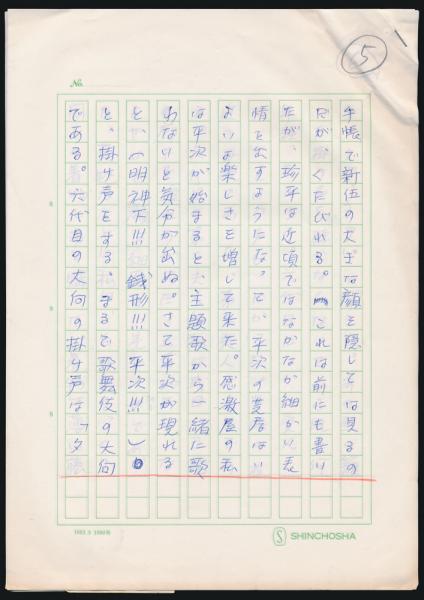 5
No.
手帳で新伍の大きな顔を隠しては見るの
だが、くたびれるな。これは前にも書い
たが、珍平は近頃ではなかなか細かい表
情を出すようになって、平次の芝居はい
よいよ楽しさを増して来た。感激屋の私
は平次が始まると、主題歌から一緒に歌
わないと気分が出ぬ。さて平次が現れる
と、(明神下!!! 銭形!!! 平次!!!)
と、掛け声をする。まるで歌舞伎の大向
である。六代目の大向の掛け声は「夕
SHINCHOSHA